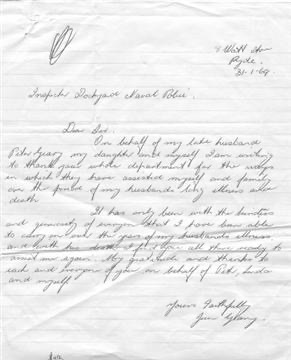 8 Watt Ave
Ryde.
31-1-69
Inspector Dockyard Naval Police.
Dear Sir.
On behalf of my late husband
Peter Geary my daughter and myself I am writing
to thank your whole department for the ways
in which they have assisted myself and family
over the period of my husbands long illness and
death.
It has only been with the kindness
and generosity of everyone that I have been able
to carry on over the years of my husbands illness
and with his death I find you all there ready to
assist me again. My gratitude and thanks to
each and everyone of you on behalf of Pete, Linda
and myself.
Yours Faithfully
Geary